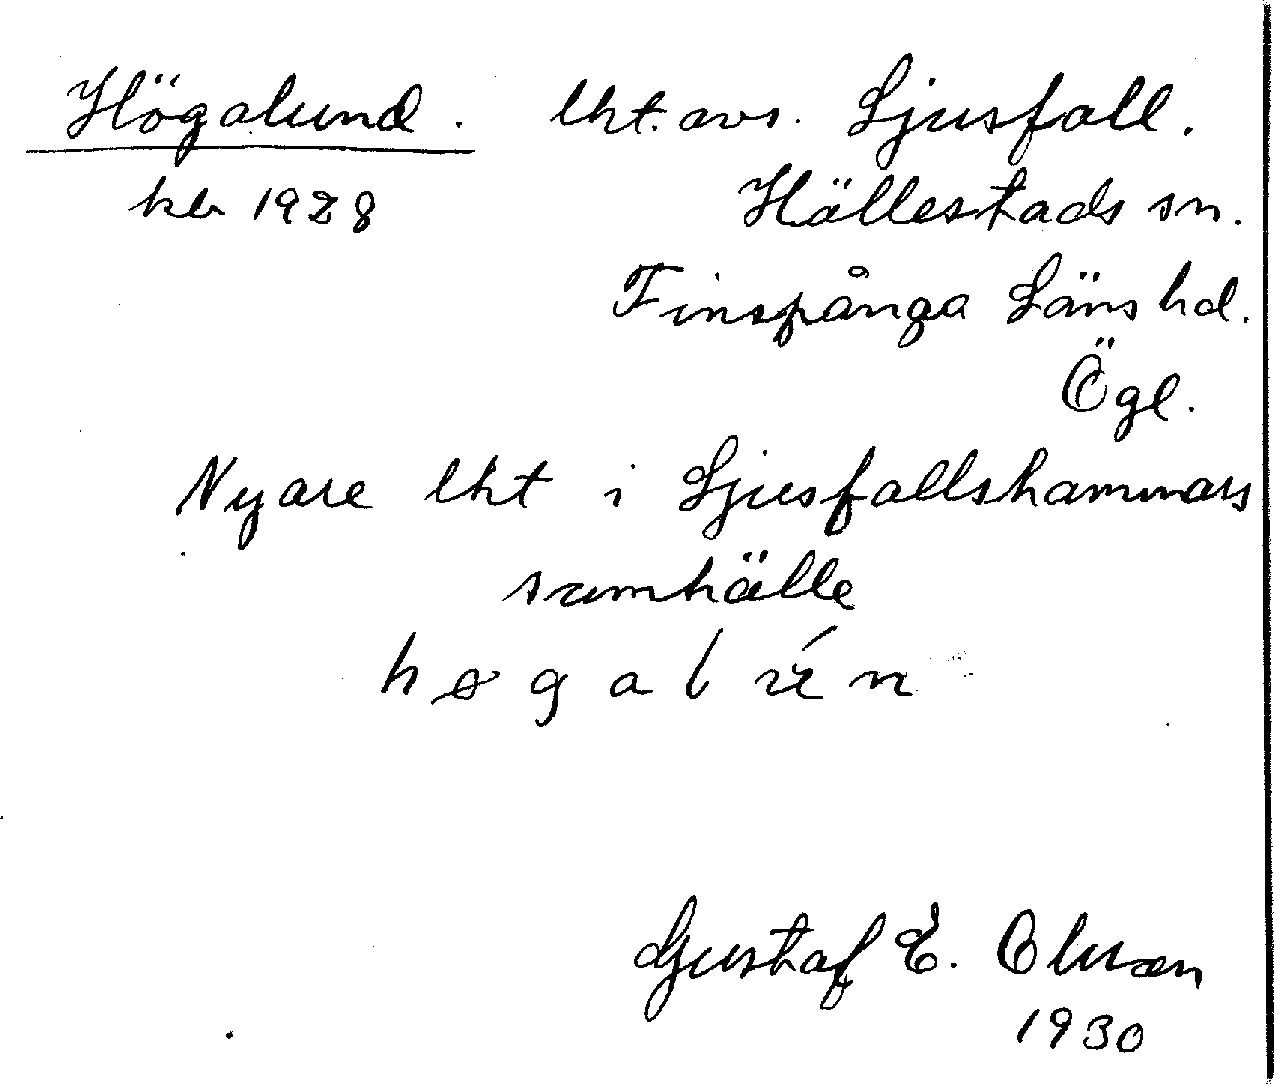 Högalund. lht. avs. Ljusfall.
kb 1928 Hällestads sn.
Finspånga Läns hd.
Ögl.
Nyare lht i Ljusfallshammars
samhälle
Gustaf E. Olsson
1930